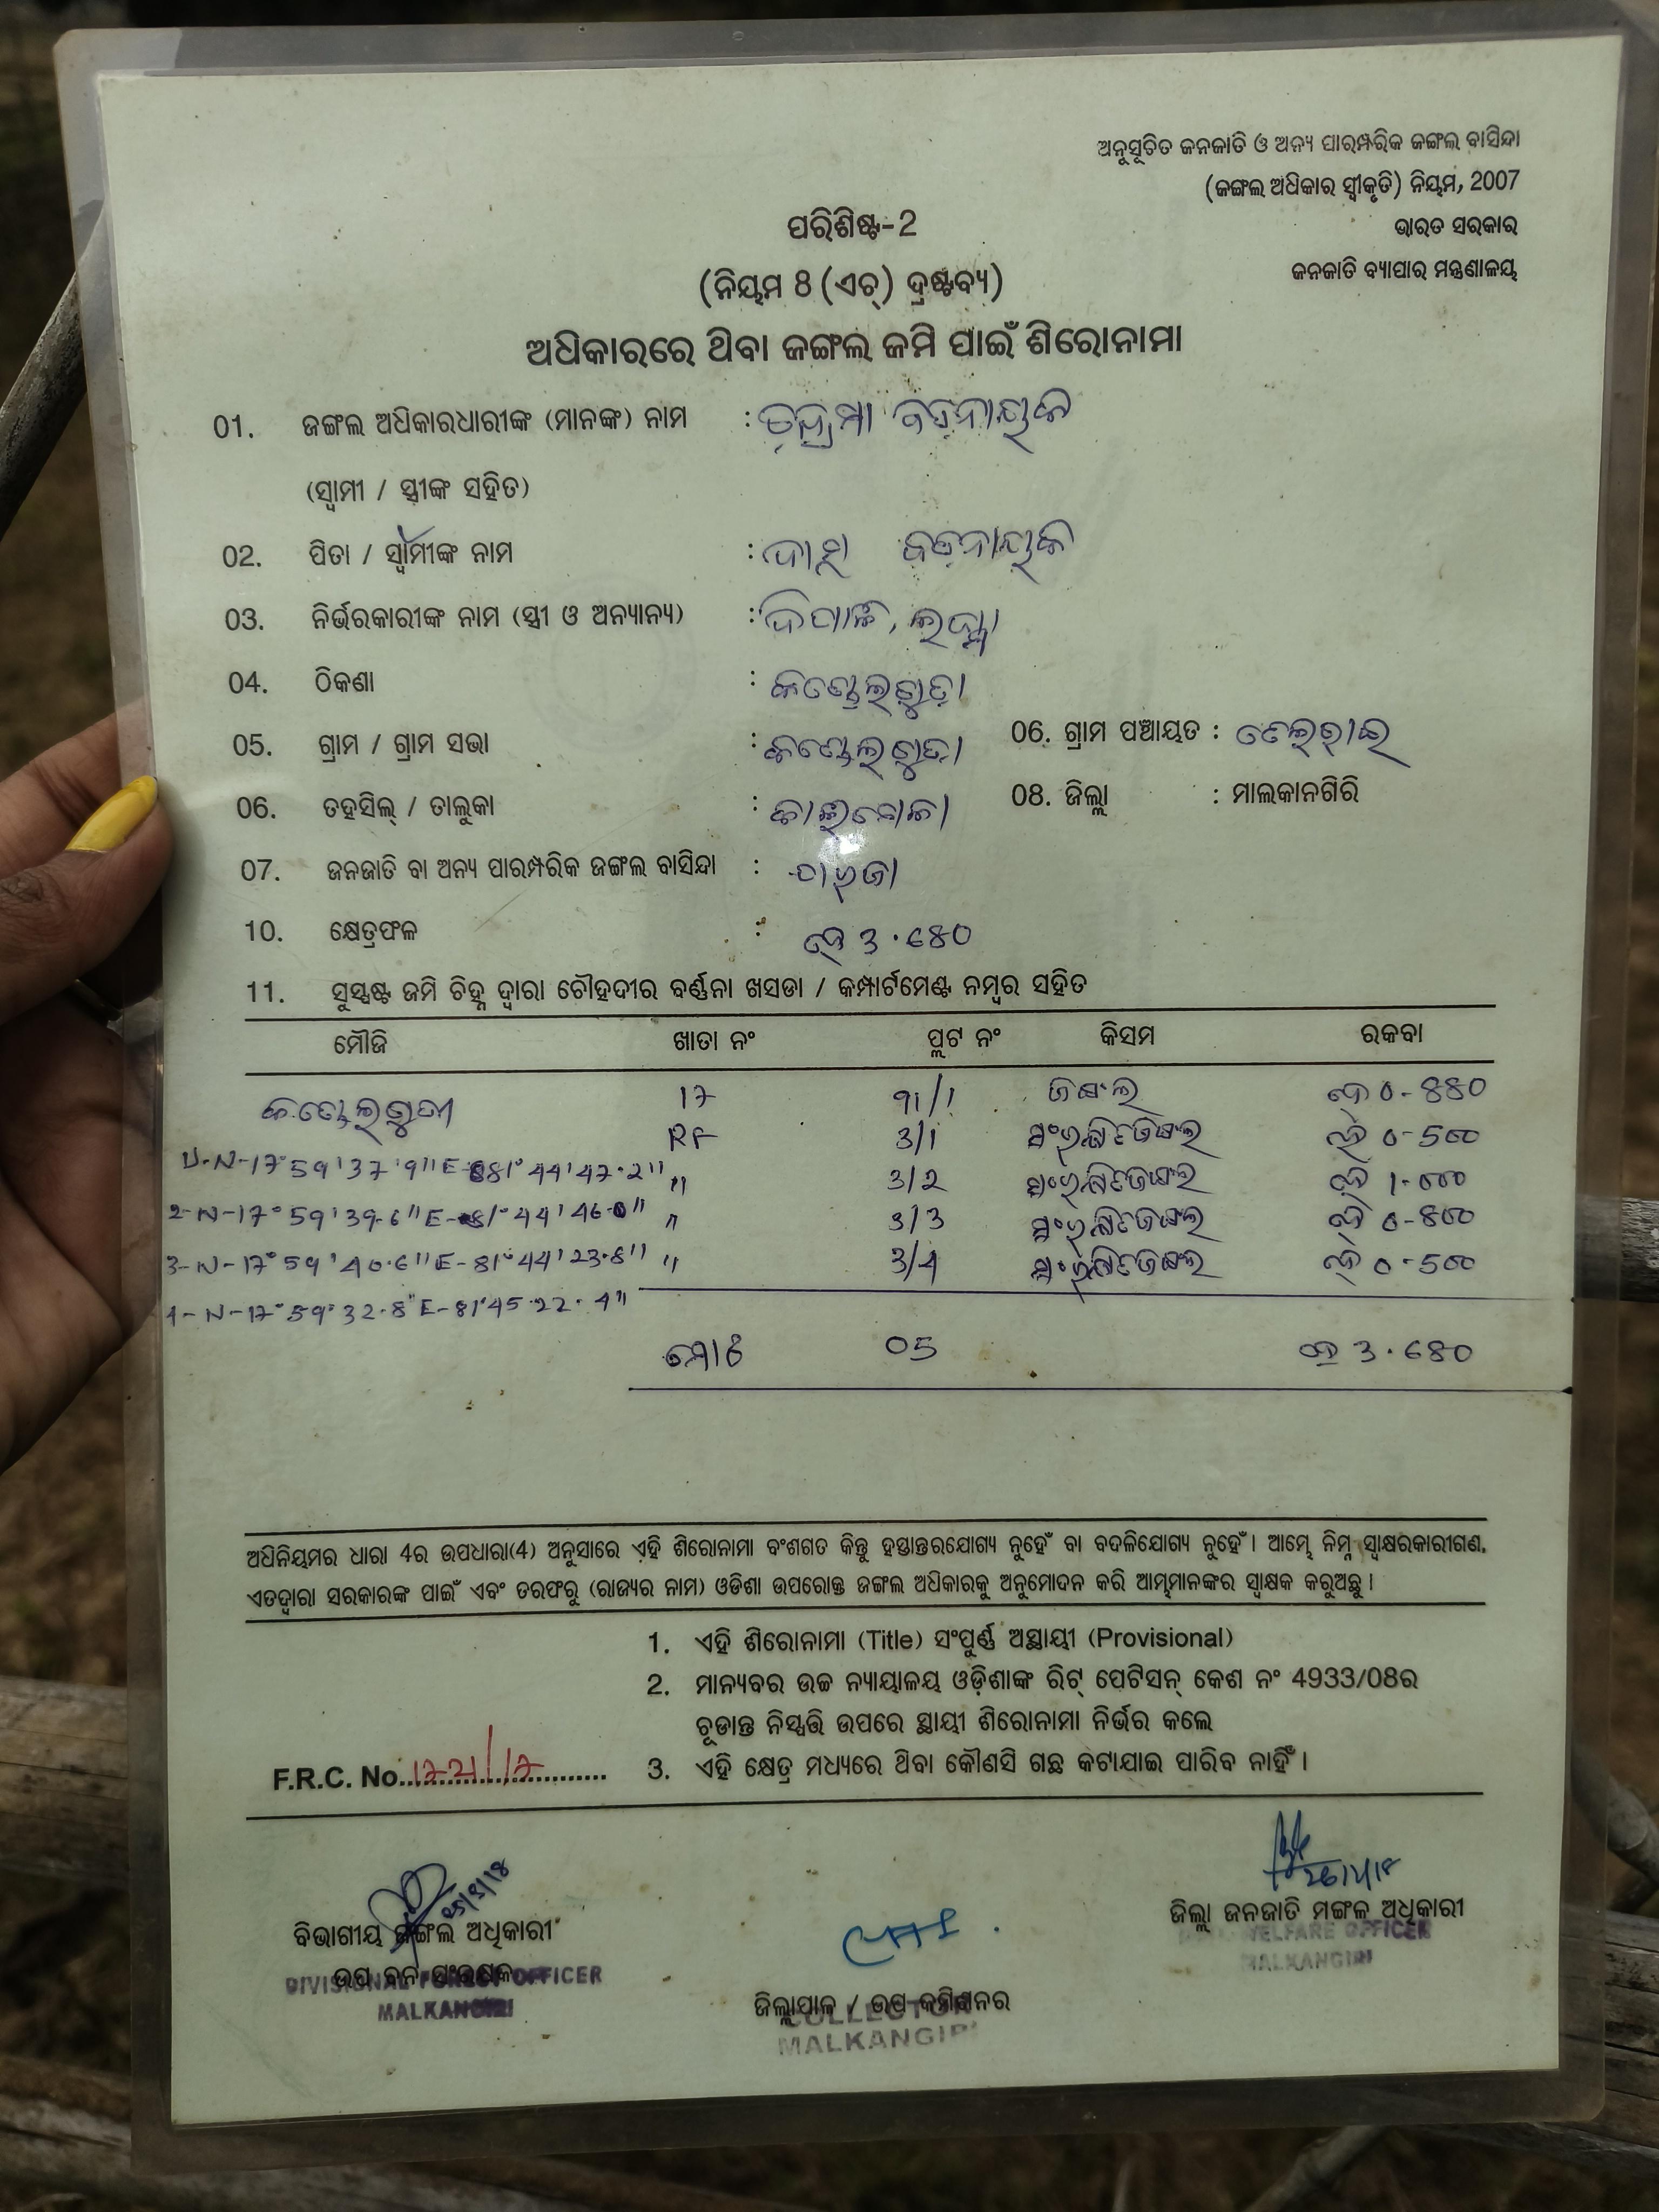 ଅନୁସୂଚିତ ଜନଜାତି ଓ ଅନ୍ୟ ପାରମ୍ପରିକ ଜଙ୍ଗଲ ବାସିନ୍ଦା
(ଜଙ୍ଗଲ ଅଧିକାର ସ୍ୱୀକୃତି) ନିୟମ, 2007
ଭାରତ ସରକାର
ଜନଜାତି ବ୍ୟାପାର ମନ୍ତ୍ରଣାଳୟ
ପରିଶିଷ୍ଟ-2
(ନିୟମ 8 (ଏଚ୍) ଦ୍ରଷ୍ଟବ୍ୟ)
ଅଧିକାରରେ ଥିବା ଜଙ୍ଗଲ ଜମି ପାଇଁ ଶିରୋନାମା
01. ଜଙ୍ଗଲ ଅଧିକାରଧାରୀଙ୍କ (ମାନଙ୍କ) ନାମ :
(ସ୍ୱାମୀ / ସ୍ତ୍ରୀଙ୍କ ସହିତ)
02. ପିତା / ସ୍ୱାମୀଙ୍କ ନାମ :
03. ନିର୍ଭରକାରୀଙ୍କ ନାମ (ସ୍ତ୍ରୀ ଓ ଅନ୍ୟାନ୍ୟ) :
04. ଠିକଣା : କଣ୍ଢେଲଗୁଡ଼ା
05. ଗ୍ରାମ / ଗ୍ରାମ ସଭା : କଣ୍ଢେଲଗୁଡା 06. ଗ୍ରାମ ପଞ୍ଚାୟତ :
06. ତହସିଲ୍ / ତାଲୁକା : 08. ଜିଲ୍ଲା : ମାଲକାନଗିରି
07. ଜନଜାତି ବା ଅନ୍ୟ ପାରମ୍ପରିକ ଜଙ୍ଗଲ ବାସିନ୍ଦା :
10. କ୍ଷେତ୍ରଫଳ : ହେ 3.680
11. ସୁସ୍ପଷ୍ଟ ଜମି ଚିହ୍ନ ଦ୍ୱାରା ଚୌହଦୀର ବର୍ଣ୍ଣନା ଖସଡା / କମ୍ପାର୍ଟମେଣ୍ଟ ନମ୍ବର ସହିତ
ମୌଜି ଖାତା ନଂ ପ୍ଲଟ ନଂ କିସମ ରକବା
17 91/1 ଜଙ୍ଗଲ ହେ 0-880
RF 3/1 ସଂରକ୍ଷିତଜଙ୍ଗଲ ହେ 0-500
1-N-17°59'37'9"E-81°44'47.2" " 3/2 ସଂରକ୍ଷିତଜଙ୍ଗଲ ହେ 1-000
2-N-17°59'39.6"E-81°44'46.0" " 3/3 ସଂରକ୍ଷିତଜଙ୍ଗଲ ହେ 0-800
3-N-17°59'40.6"E-81°44'23.8" " 3/4 ସଂରକ୍ଷିତଜଙ୍ଗଲ ହେ 0-500
4-N-17°59'32.8"E-81°45.22.4"
ମୋଟ 05 ହେ 3.680
ଅଧିନିୟମର ଧାରା 4ର ଉପଧାରା(4) ଅନୁସାରେ ଏହି ଶିରୋନାମା ବଂଶଗତ କିନ୍ତୁ ହସ୍ତାନ୍ତରଯୋଗ୍ୟ ନୁହେଁ ବା ବଦଳିଯୋଗ୍ୟ ନୁହେଁ । ଆମ୍ଭେ ନିମ୍ନ ସ୍ୱାକ୍ଷରକାରୀଗଣ,
ଏତଦ୍ଦ୍ୱାରା ସରକାରଙ୍କ ପାଇଁ ଏବଂ ତରଫରୁ (ରାଜ୍ୟର ନାମ) ଓଡିଶା ଉପରୋକ୍ତ ଜଙ୍ଗଲ ଅଧିକାରକୁ ଅନୁମୋଦନ କରି ଆମ୍ଭମାନଙ୍କର ସ୍ୱାକ୍ଷକ କରୁଅଛୁ ।
1. ଏହି ଶିରୋନାମା (Title) ସଂପୂର୍ଣ୍ଣ ଅସ୍ଥାୟୀ (Provisional)
2. ମାନ୍ୟବର ଉଚ୍ଚ ନ୍ୟାୟାଳୟ ଓଡ଼ିଶାଙ୍କ ରିଟ୍ ପେଟିସନ୍ କେଶ ନଂ 4933/08ର
ଚୂଡାନ୍ତ ନିସ୍ପତ୍ତି ଉପରେ ସ୍ଥାୟୀ ଶିରୋନାମା ନିର୍ଭର କଲେ
F.R.C. No. 1721/17 3. ଏହି କ୍ଷେତ୍ର ମଧ୍ୟରେ ଥିବା କୌଣସି ଗଛ କଟାଯାଇ ପାରିବ ନାହିଁ ।
ବିଭାଗୀୟ ଜଙ୍ଗଲ ଅଧିକାରୀ
ଉପ ବନ ସଂରକ୍ଷକ
DIVISIONAL FOREST OFFICER
MALKANGIRI
ଜିଲ୍ଲାପାଳ / ଉପ କମିଶନର
COLLECTOR
MALKANGIRI
26/1/18
ଜିଲ୍ଲା ଜନଜାତି ମଙ୍ଗଳ ଅଧିକାରୀ
WELFARE OFFICER
MALKANGIRI